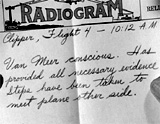 RADIOGRAM
Clipper, Flight 4 - 10:12 A M
Van Meer conscious. Has
provided all necessary evidence
Steps have been taken to
meet plane other side.